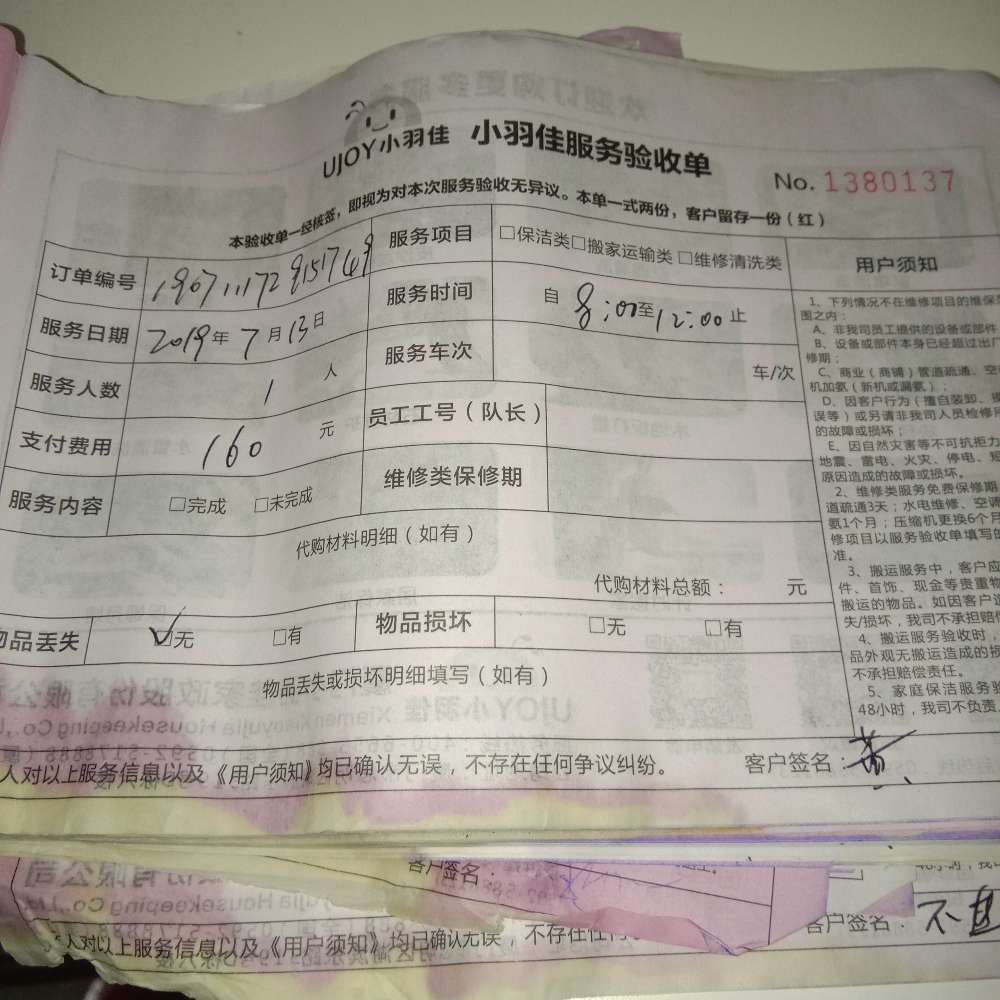 UJOY小羽佳 小羽佳服务验收单
No. 1380137
本验收单一经核签，即视为对本次服务验收无异议。本单一式两份，客户留存一份（红）
订单编号 服务项目 □保洁类□搬家运输类 □维修清洗类 用户须知
服务日期 2019年7月13日 服务时间 自 8:00至12:00止
服务人数 1 人 服务车次 车/次
支付费用 160 元 员工工号（队长）
服务内容 □完成 □未完成 维修类保修期
代购材料明细（如有）
代购材料总额： 元
物品丢失 ☑无 □有 物品损坏 □无 □有
物品丢失或损坏明细填写（如有）
人对以上服务信息以及《用户须知》均已确认无误，不存在任何争议纠纷。 客户签名：
1、下列情况不在维修项目的维保
围之内：
A、非我司员工提供的设备或部件
B、设备或部件本身已经超过出厂
修期；
C、商业（商铺）管道疏通、空
机加氨（新机或漏氨）；
D、因客户行为（擅自装卸、
误等）或另请非我司人员检修
的故障或损坏；
E、因自然灾害等不可抗拒力
地震、雷电、火灾、停电、短
原因造成的故障或损坏。
2、维修类服务免费保修期
道疏通3天；水电维修、空调
氨1个月；压缩机更换6个月
修项目以服务验收单填写的
准。
3、搬运服务中，客户应
件、首饰、现金等贵重物
搬运的物品。如因客户
失/损坏，我司不承担赔偿
4、搬运服务验收时，
品外观无搬运造成的损
不承担赔偿责任。
5、家庭保洁服务验
48小时，我司不负责
客户签名：
客户签名：
人对以上服务信息以及《用户须知》均已确认无误，不存在任何